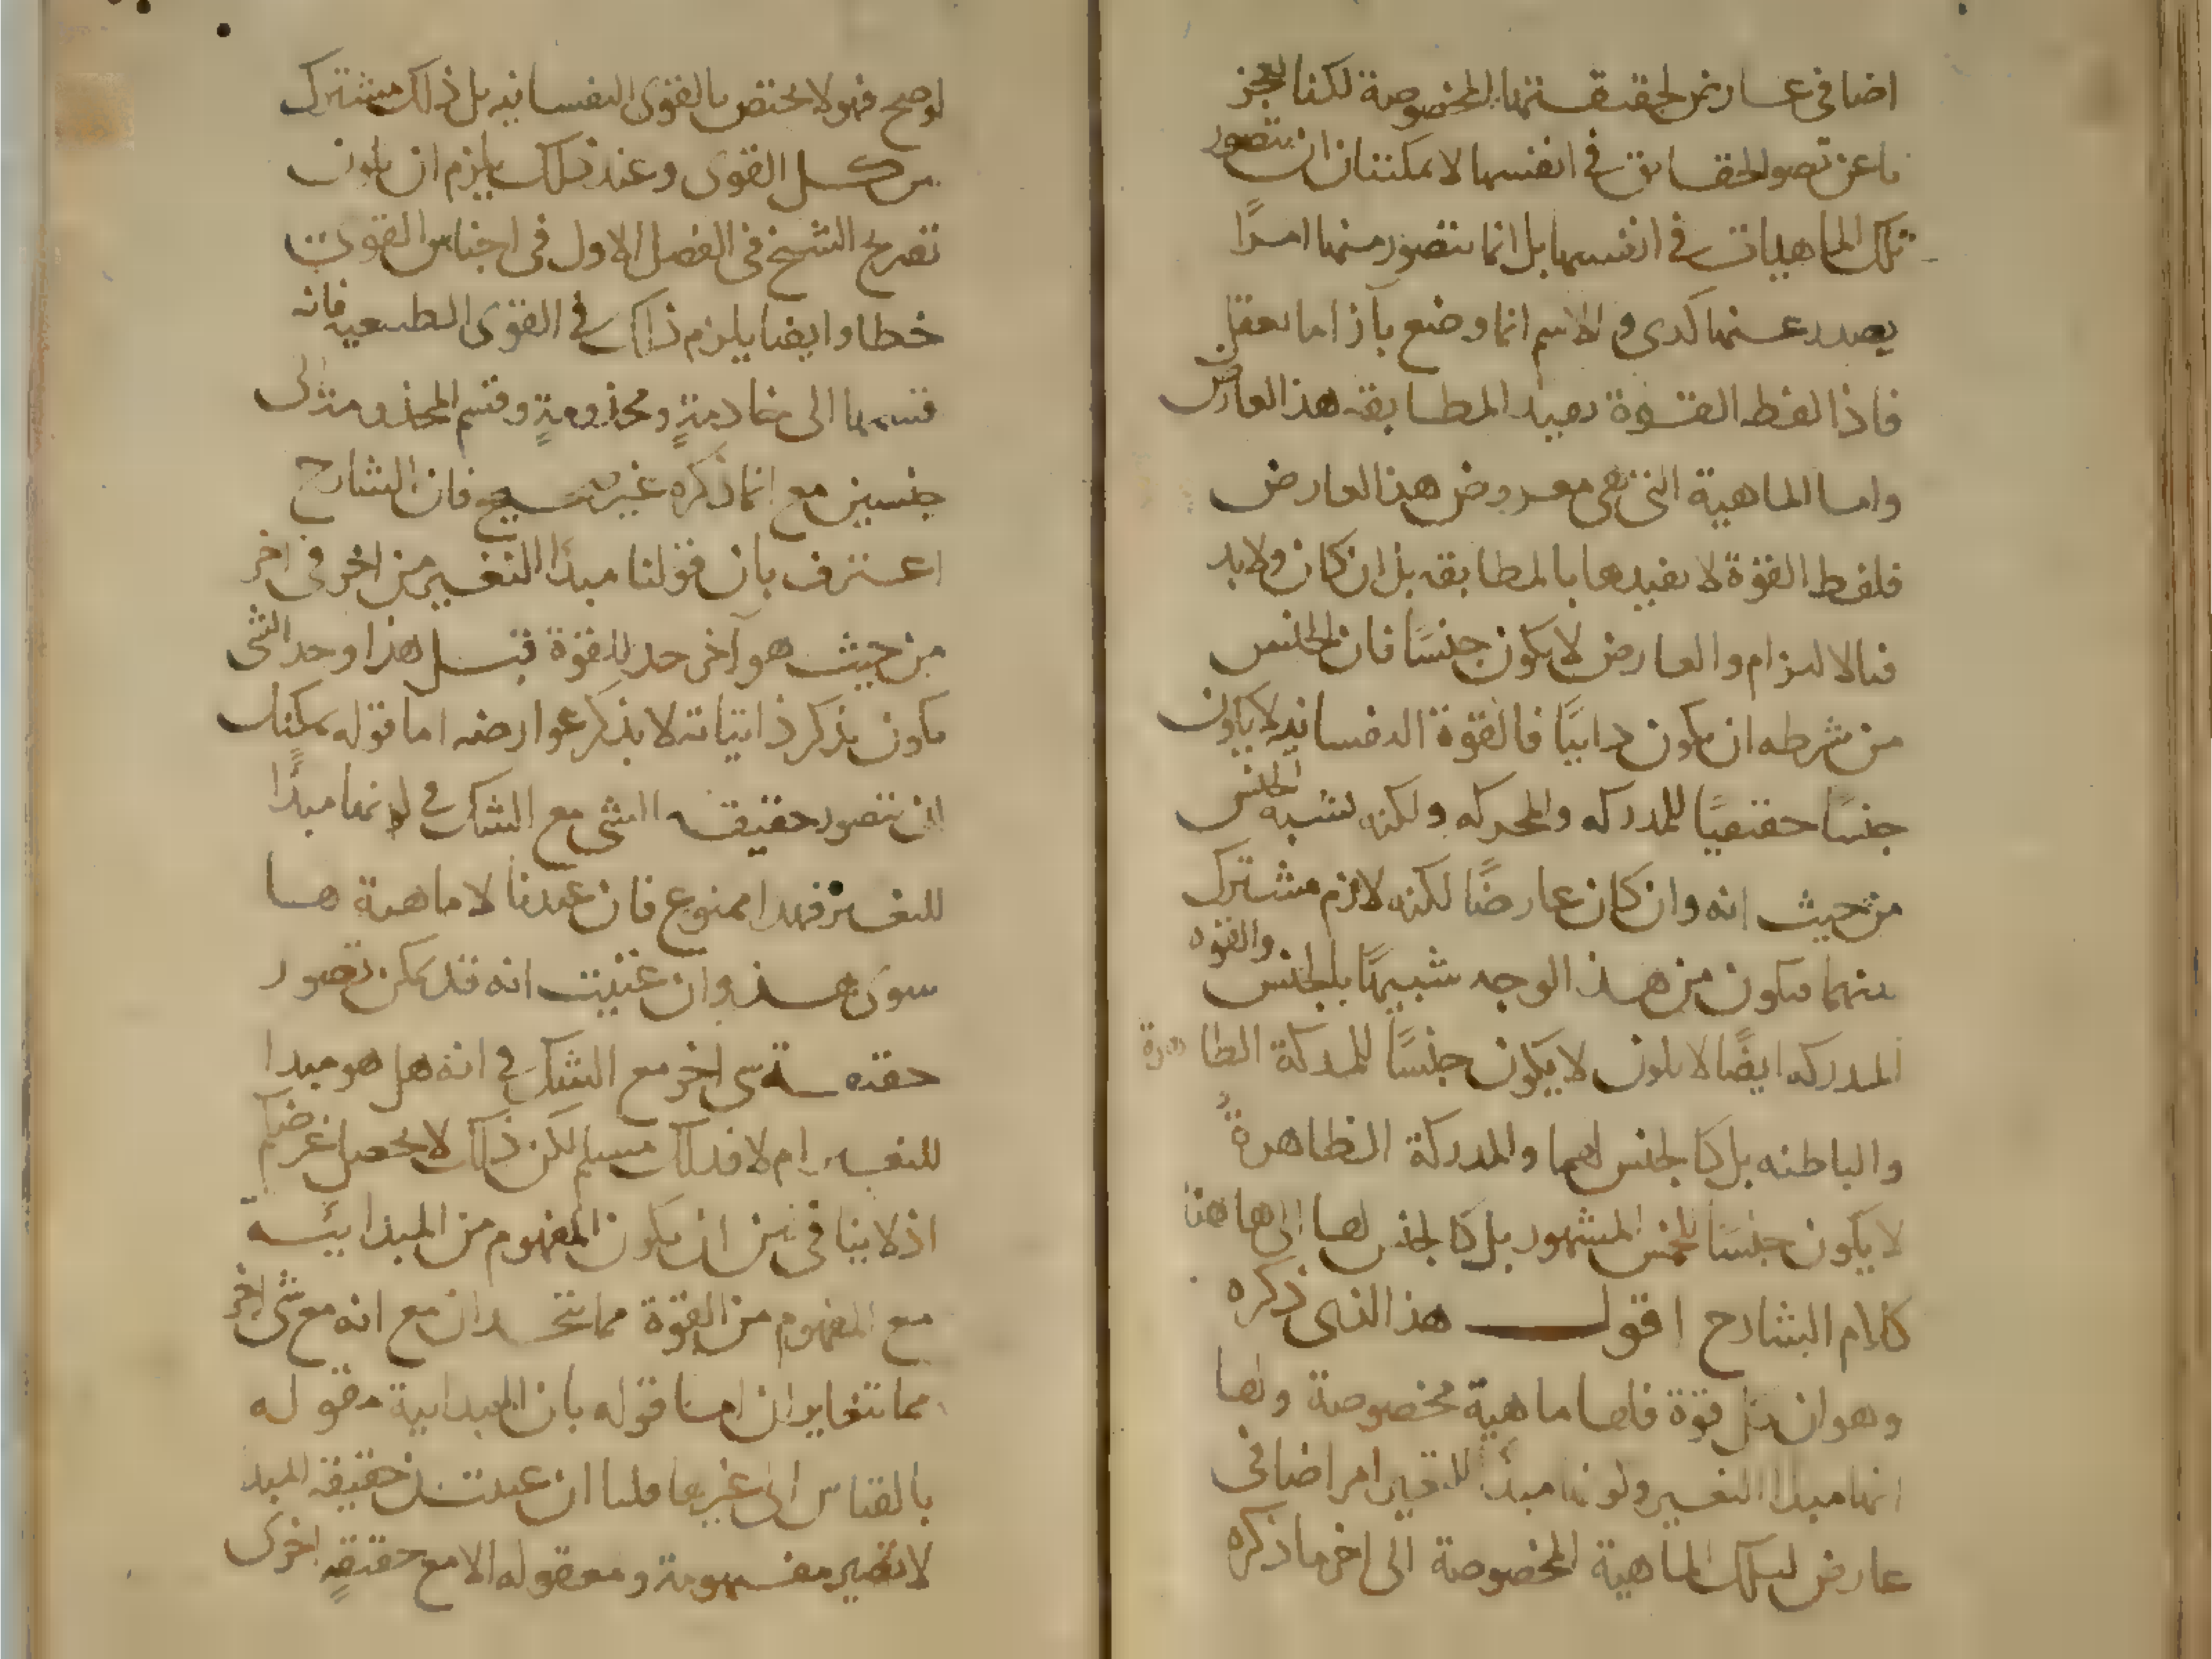 اضافي عارض لحقيقتها المخصوصة لكنا لعجز
نا عن تصور الحقايق في انفسها لا يمكننا ان نتصور
تلك الماهيات في انفسها بل انما نتصور منها امرًا
يصدر عنها كدى والاسم انما وضع بآزا ما نعقل
فاذا لفظ القوة يفيد المطابقه هذا العارض
واما الماهية التي هي معروض هذا العارض
فلفظ القوة لا يفيدها بالمطابقه بل ان كان ولا بد
فبالالتزام والعارض لا يكون جنسًا فان الجنس
من شرطه ان يكون ذاتيًا فالقوة النفسانيه لا يكون
جنسًا حقيقيًا للمدركه والمحركه ولكنه لشبه الجنس
من حيث انه وان كان عارضًا لكنه لازم مشترك
بينهما فيكون من هذ الوجه شبيهًا بالجنس والقوه
المدركه ايضًا لا يكون لا يكون جنسًا للمدركة الظاهرة
والباطنه بل كالجنس لهما والمدركة الظاهرةُ
لا يكون جنسًا للخمس المشهور بل كالجنس لها الى هاهنا
كلام الشارح اقول هذا الذى ذكره
وهو ان كل قوة فلها ماهية مخصوصة ولها
انها مبدا التغير وكونها مبدأ للتغير امر اضافى
عارض لتلك الماهية المخصوصة الى اخر ما ذكره
لو صح فهو لا يختص بالقوى النفسانيه بل ذلك مشترك
بين كل القوى وعند ذلك يلزم ان يكون
تصريح الشيخ في الفصل الاول في اجناس القوى
خطا وايضا يلزم ذلك في القوى الطبيعيه فانه
قسمها الى خادمةٍ ومخذومةٍ وقسم المخذومة الى
جنسين مع انما ذكره غير صحيح فان الشارح
اعترف بان قولنا مبدأ التغير من اخر في اخر
من حيث هو آخر حد للقوة قبل هذا وحد الشى
يكون بذكر ذاتياته لا بذكر عوارضه اما قوله يمكننا
ان نتصور حقيقه الشى مع الشك في كونها مبدًا
للتغير فهدا ممنوع فان عندنا لا ماهية لها
سوى هذه وان عنيت انه قد يمكن تصور
حقيقة شى اخر مع الشك في انه هل هو مبدا
للتغير ام لا فذلك مسلم لكن ذلك لا يحصل غرضكم
اذ لا ينافى بين ان يكون المفهوم من المبدائية
مع المفهوم من القوة مما يتحدان مع انه مع شى اخر
مما يتغايران اما قوله بان المبدايية مقوله
بالقياس الى غيرها قلنا ان عنيت ان حقيقة المبد
لا تصير مفهومة ومعقوله الا مع حقيقةٍ اخرى